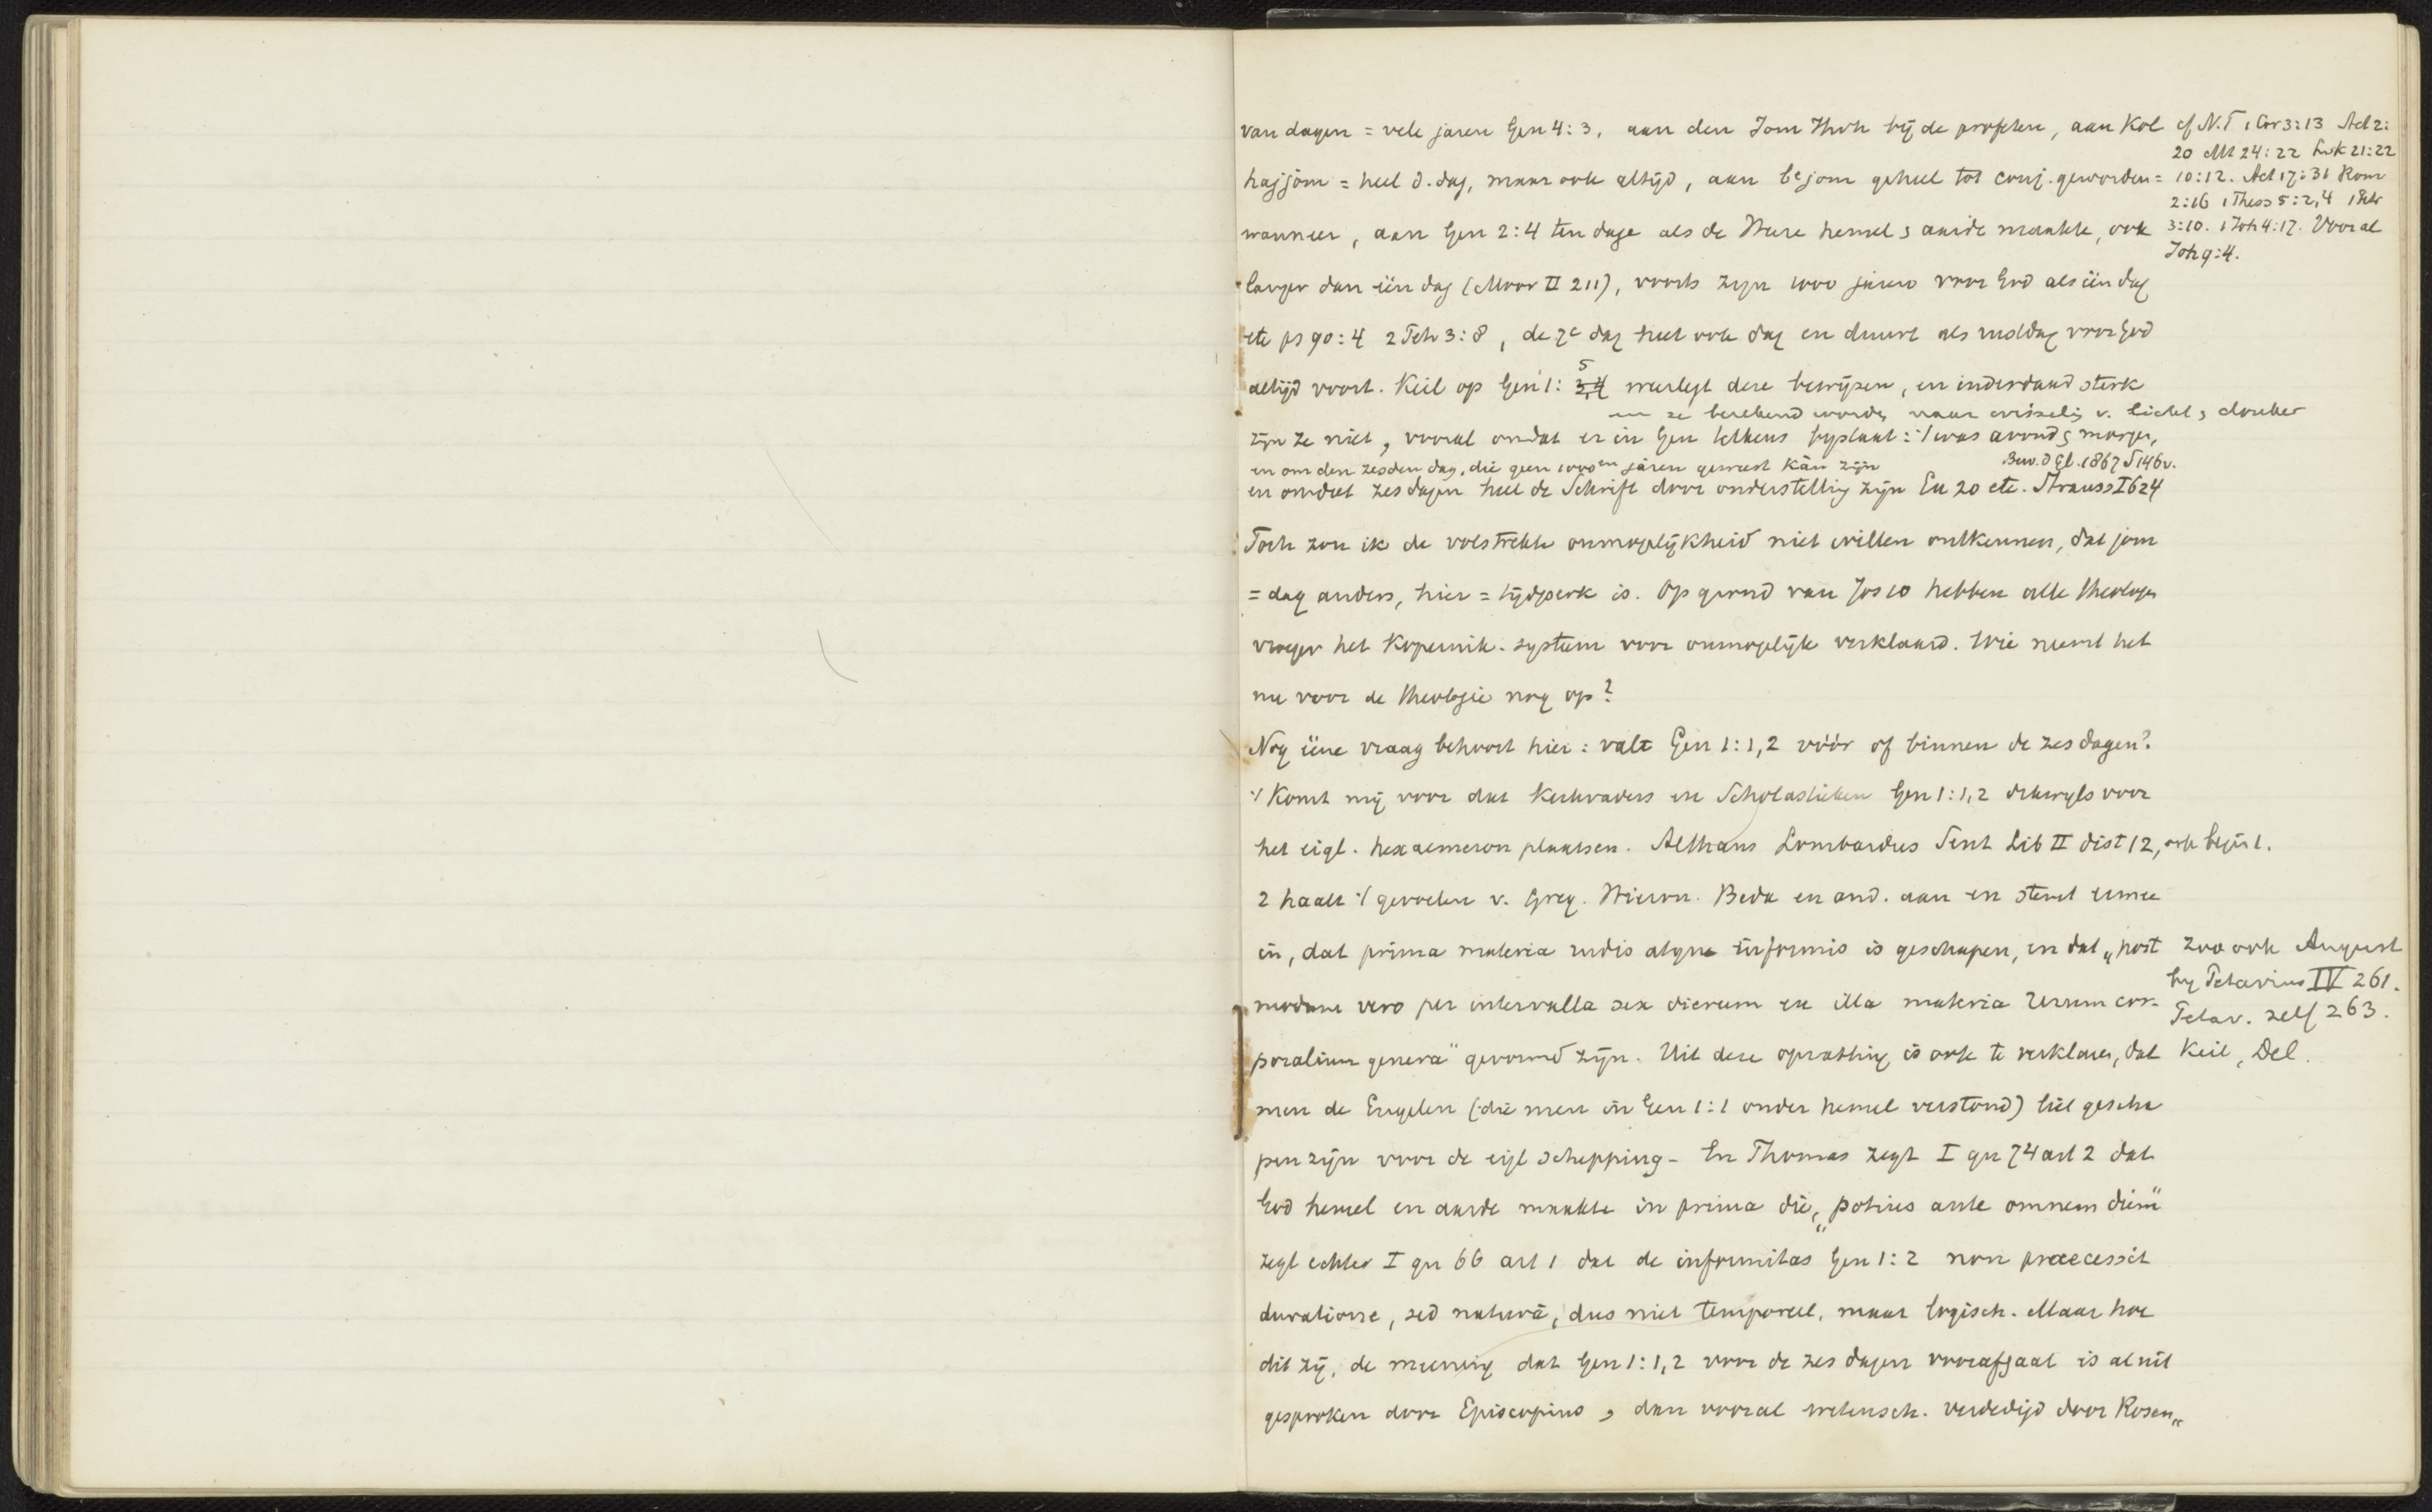 van dagen = vele jaren Gen 4:3, aan den Jom Jhvh bij de profeten, aan Kol
hajjôm = heel d. dag, maar ook altijd, aan bejom geheel tot conj. geworden =
wanneer, aan Gen 2:4 ten dage als de Heere hemel & aarde maakte, ook
langer dan één dag (Moor II 211), voorts zijn 1000 jaren voor God als één dag
etc ps 90:4 2 Petr 3:8, de 7e dag heet ook dag en duurt als rustdag voor God
altijd voort. Keil op Gen 1: 5 weerlegt deze bewijzen, en inderdaad sterk
en ze berekend worden naar wisseling v. licht & donker
zijn ze niet, vooral omdat er in Gen telkens bijstaat: 't was avond & morgen,
en om den zesden dag, die geen 1000en jaren geweest kàn zijn
Bew. d Gl. 1867 S 146v.
en omdat zes dagen heel de Schrift door onderstelling zijn Ex 20 etc. Strauss I 624
Toch zou ik de volstrekte onmogelijkheid niet willen ontkennen, dat jom
= dag anders, hier = tijdperk is. Op grond van Jos 10 hebben alle theologen
vroeger het Kopernik. systeem voor onmogelijk verklaard. Wie neemt het
nu voor de theologie nog op?
Nog ééne vraag behoort hier: valt Gen 1:1,2 vóór of binnen de zes dagen?
't Komt mij voor dat Kerkvaders en Scholastieken Gen 1:1,2 dikwijls voor
het eigl. hexaemeron plaatsen. Althans Lombardus Sent Lib II dist 12, ook begin 1.
2 haalt 't gevoelen v. Greg. Hieron. Beda en and. aan en stemt ermee
in, dat prima materia rudis atque informis is geschapen, en dat „post
modum vero per intervalla sex dierum ex illa materia rerum cor-
poralium genera" gevormd zijn. Uit deze opvatting is ook te verklaren, dat
men de Engelen (die men in Gen 1:1 onder hemel verstond) liet gescha
pen zijn voor de eigl schepping - En Thomas zegt I qu 74 art 2 dat
God hemel en aarde maakte in prima die, „potius ante omnem diem"
zegt echter I qu 66 art 1 dat de informitas Gen 1:2 non praecessit
duratione, sed naturâ, dus niet temporeel, maar logisch. Maar hoe
dit zij, de meening dat Gen 1:1,2 voor de zes dagen voorafgaat is al uit
gesproken door Episcopius, dan vooral wetensch. verdedigd door Rosen„
cf N.T 1 Cor 3:13 Act 2:
20 Mt 24:22 Luk 21:22
10:12. Act 17:31 Rom
2:16 1 Thess 5:2,4 Petr
3:10. 1 Joh 4:17. Vooral
Joh 9:4.
zoo ook August
bij Petavius IV 261.
Petav. zelf 263.
Keil, Del.